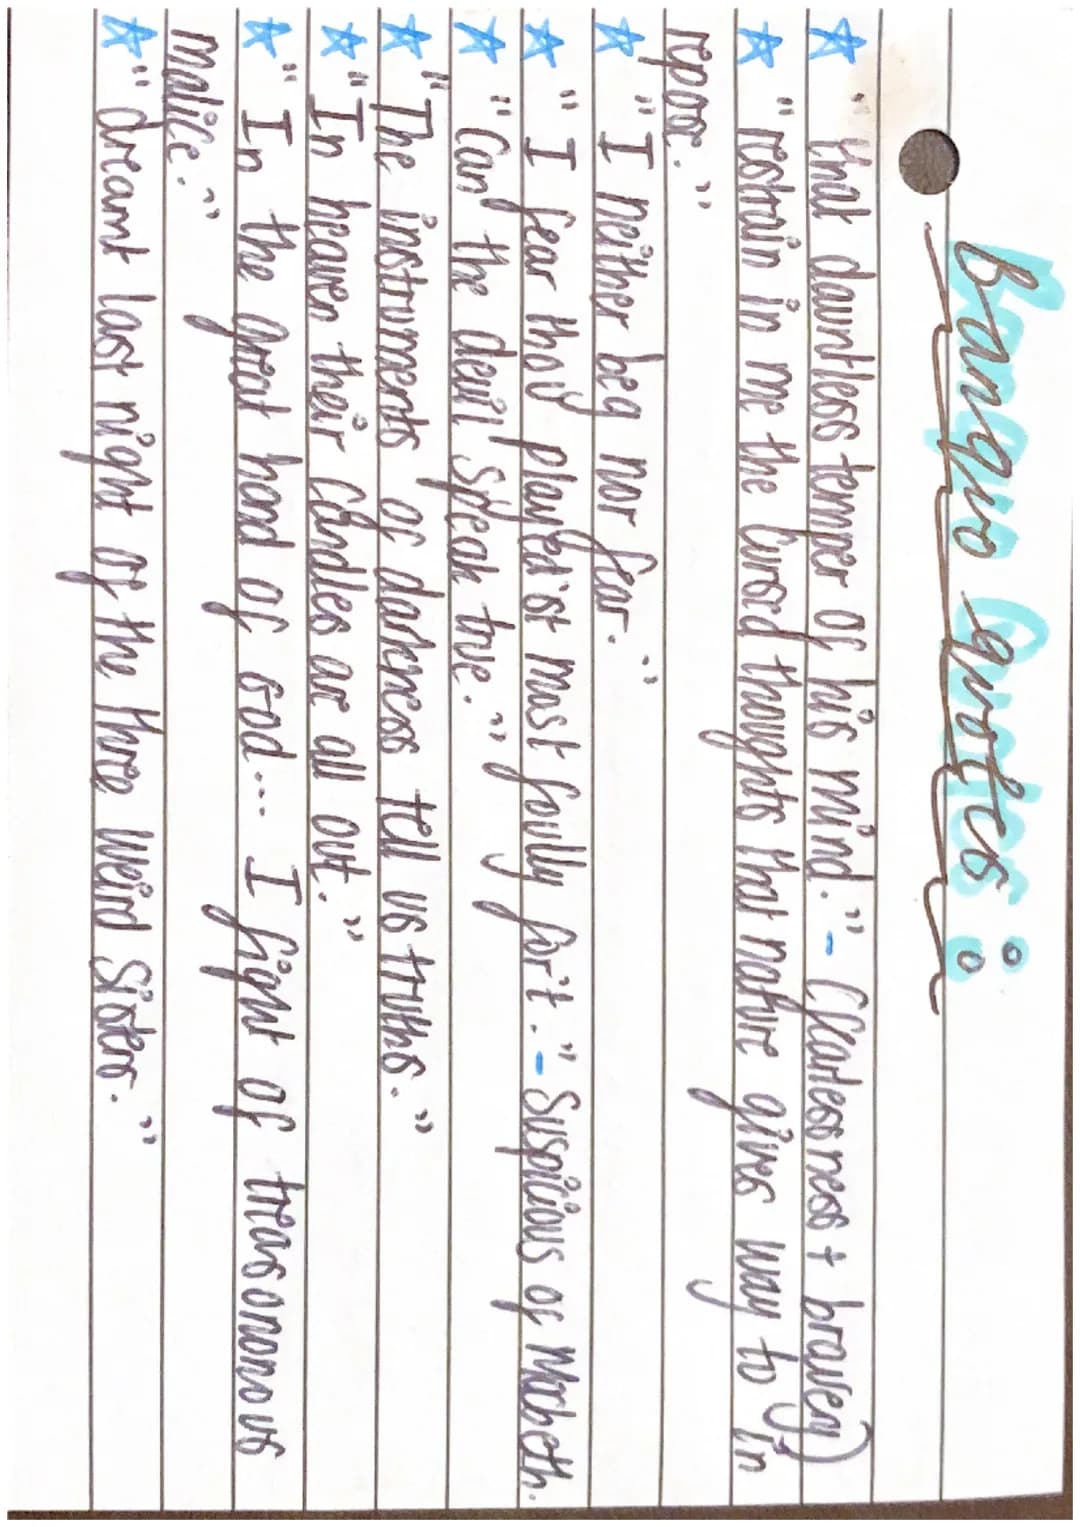 Banquo Quotes:
☆ "that dauntless temper of his mind." - (fearlessness + bravery)
☆ "restrain in me the cursed thoughts that nature gives way to in
repose."
☆ "I neither beg nor fear."
☆ "I fear thou played'st most foully for't." - Suspicious of Macbeth.
☆ "Can the devil speak true."
☆ "The instruments of darkness tell us truths."
☆ "In heaven their candles are all out."
☆ "In the great hand of God... I fight of treasononous
malice."
☆ "dreamt last night of the three Weird Sisters."